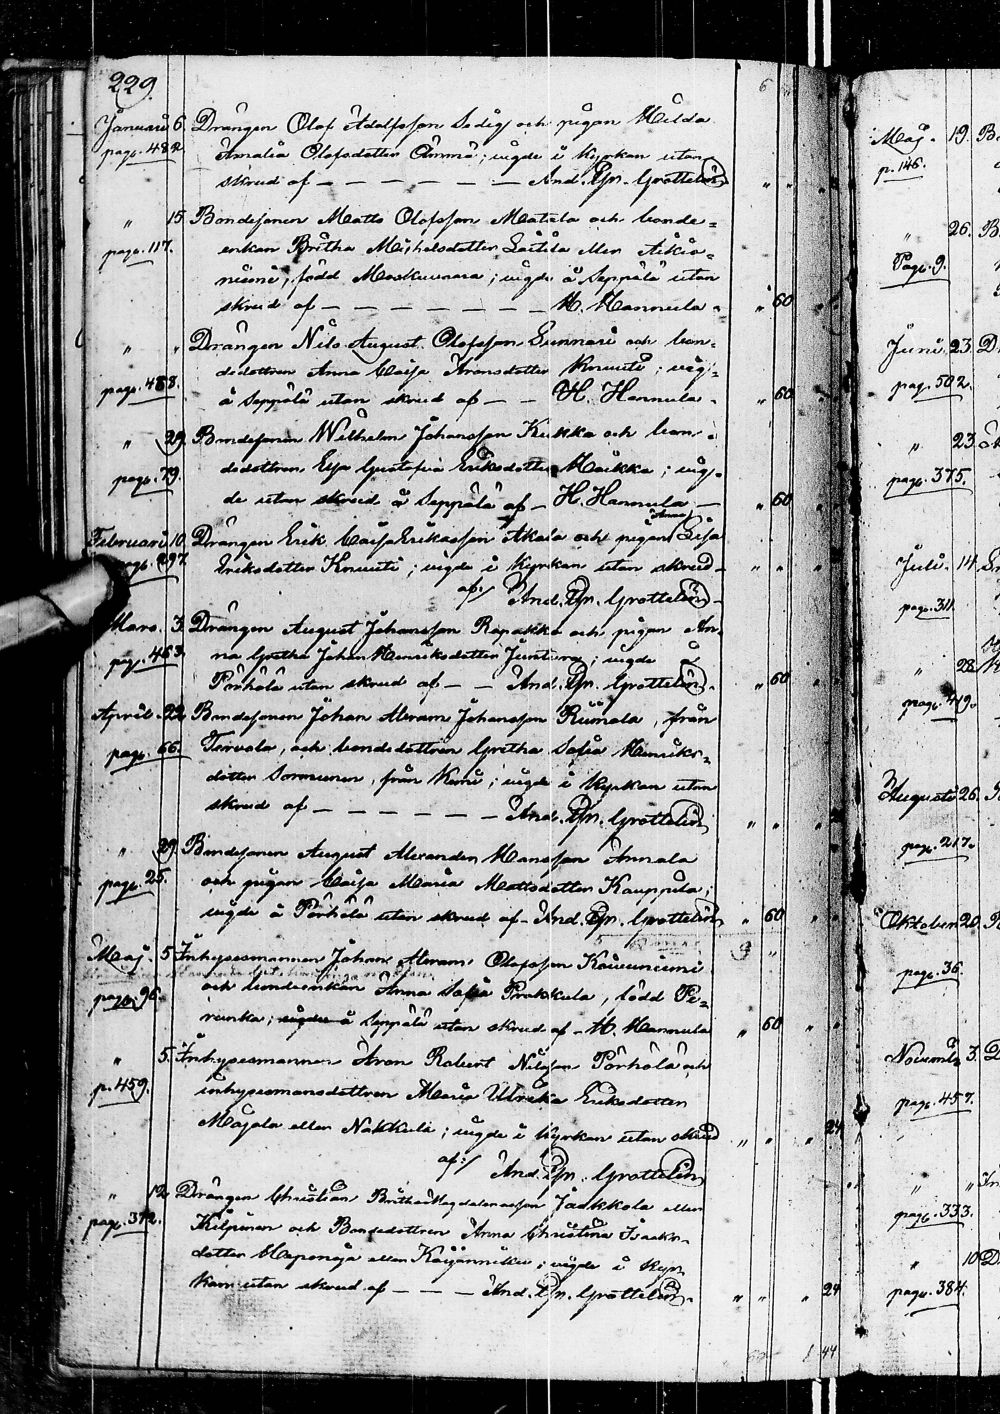 229.
Januari 6. Drängen Olof Adolfsson Sedig och pigan Hilda
pag. 482. Amalia Olofsdotter Ämmä; vigde i kyrkan utan
skrud af — — — — — — And. Joh. Grottelin
" 15. Bondesonen Matts Olofsson Matila och bonde-
pag. 117. enkan Britha Michelsdotter eller Aikio-
niemi, född ; vigde å Seppälä utan
skrud af — — — — — — H. Hannula. " 60
" " Drängen Nils August Olofsson Lunnari och bon-
pag. 488. dedottren Anna Caisa Aronsdotter Knuuti; vig-
å Seppälä utan skrud af — — H. Hannula. " 60
" 29. Bondesonen Wilhelm Johansson Kukko och bon-
pag. 79. dedottren Elsa Gustafva Eriksdotter Maikko; vig-
de utan skrud å Seppälä af — H. Hannula — " 60
Anna
Februari 10. Drängen Erik Caisa Eriksson Akola och pigan Lisa
pag. 297. Eriksdotter Knuuti; vigde i kyrkan utan skrud " " "
af:/ And. Joh. Grottelin
Mars. 3. Drängen August Johansson Repakka och pigan An-
pag. 463. na Gretha Johan Henriksdotter Juntura; vigde å
Pörhölä utan skrud af — — And. Joh. Grottelin. " 60
April. 22. Bondesonen Johan Abram Johansson Riimala, från
pag. 66. Tervola, och bondedottren Gretha Sofia Henriks-
dotter Sormunen, från Kemi; vigde i kyrkan utan
skrud af — — — — — And. Joh. Grottelin " "
" 29. Bondesonen August Alexander Hansson Annala
pag. 25. och pigan Caisa Maria Mattsdotter Kauppila;
vigde å Pörhölä utan skrud af — And. Joh. Grottelin " 60
Maj. 5. Inhysesmannen Johan Abram Olofsson Kaivuniemi
pag. 96. och bondeenkan Anna Sofia Prokkola, född Pe-
runka; vigde å Seppälä utan skrud af — H. Hannula " 60
" 5. Inhysesmannen Aron Robert Nilsson Pörhölä och
p. 459. inhysesmansdottren Maria Ulrika Eriksdotter
Majala eller Nakkula; vigde i kyrkan utan skrud " " " 24
af:/ And. Joh. Grottelin
" 12. Drängen Christian Britha Magdalenasson Jaakkola eller
pag. 372. Kilpinen och Bondedottren Anna Christina Isaks-
dotter Haponoja eller ; vigde i kyr-
kan utan skrud af — — — And. Joh. Grottelin. " " " 24
44
Maj. 19.
p. 146.
" 26.
Pag. 9.
Juni. 23.
pag. 502.
" 23.
pag. 375.
Juli. 14.
pag. 311.
" 28.
pag. 479.
Augusti 26.
pag. 217.
Oktober 20.
pag. 36.
Novemb. 3.
pag. 457.
" "
pag. 333.
" 10
pag. 384.